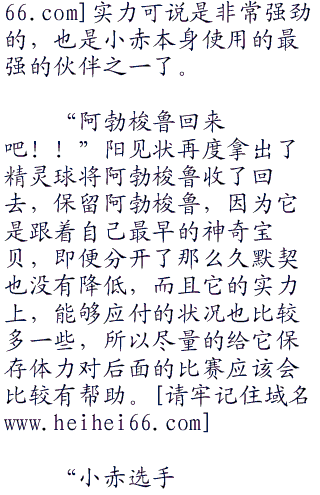 66.com]实力可说是非常强劲
的，也是小赤本身使用的最
强的伙伴之一了。
“阿勃梭鲁回来
吧！！”阳见状再度拿出了
精灵球将阿勃梭鲁收了回
去，保留阿勃梭鲁，因为它
是跟着自己最早的神奇宝
贝，即便分开了那么久默契
也没有降低，而且它的实力
上，能够应付的状况也比较
多一些，所以尽量的给它保
存体力对后面的比赛应该会
比较有帮助。[请牢记住域名
www.heihei66.com]
“小赤选手